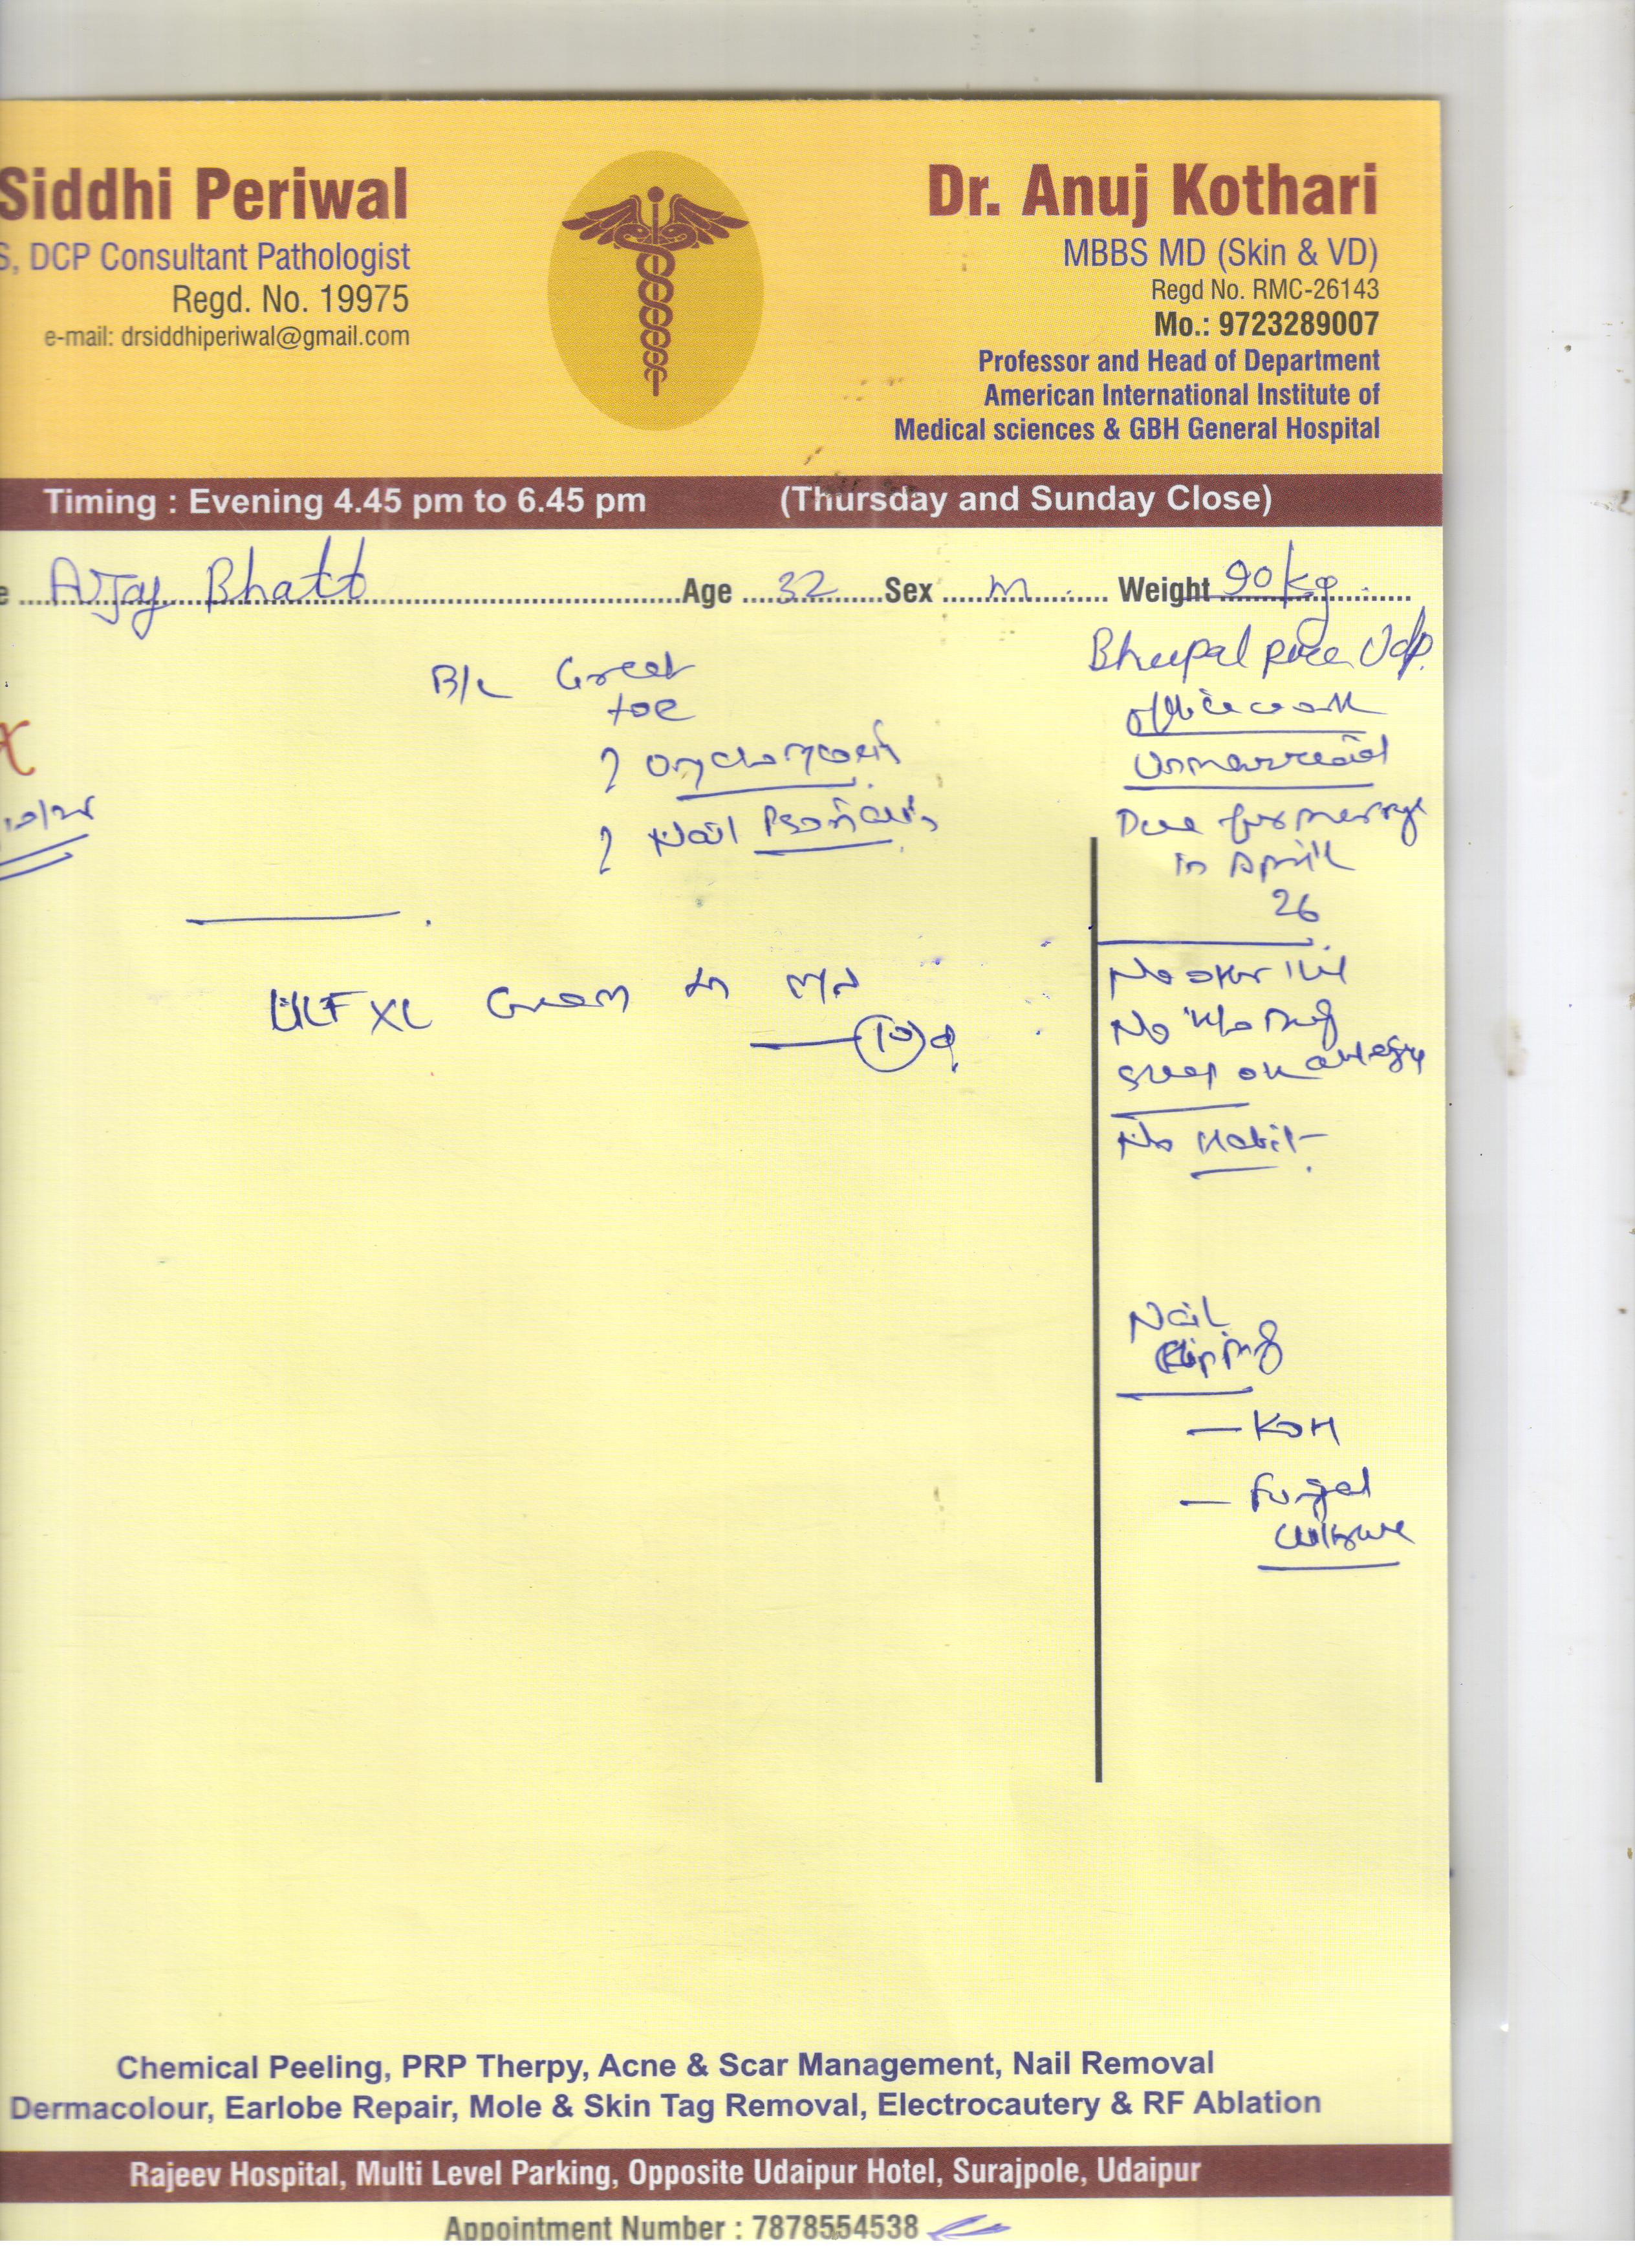 Siddhi Periwal
S, DCP Consultant Pathologist
Regd. No. 19975
e-mail: drsiddhiperiwal@gmail.com
Dr. Anuj Kothari
MBBS MD (Skin & VD)
Regd No. RMC-26143
Mo.: 9723289007
Professor and Head of Department
American International Institute of
Medical sciences & GBH General Hospital
Timing : Evening 4.45 pm to 6.45 pm (Thursday and Sunday Close)
e Ajay Bhatt Age 32 Sex M Weight 90 kg
B/L Great
toe
? Onychomycosis
? Nail Psoriasis
Cream M/N
10 d
Bhupalpura Udp.
office work
Unmarried
Due for marriage
in April
26
No other ill
No h/o drug
allergy
sleep ok
No Habit
Nail
Clipping
— KOH
— Fungal
culture
Chemical Peeling, PRP Therpy, Acne & Scar Management, Nail Removal
Dermacolour, Earlobe Repair, Mole & Skin Tag Removal, Electrocautery & RF Ablation
Rajeev Hospital, Multi Level Parking, Opposite Udaipur Hotel, Surajpole, Udaipur
Appointment Number : 7878554538